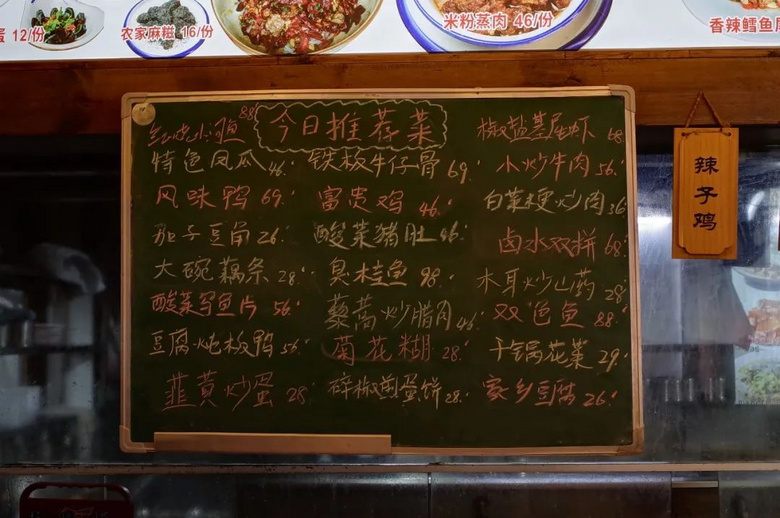 蛋 12/份
农家麻糍 16/份
米粉蒸肉 46/份
香辣鳕鱼
今日推荐菜
小鱼 88
特色凤爪 46
风味鸭 69
茄子豆角 26
大碗藕条 28
酸菜鱼片 56
豆腐炖板鸭 56
韭黄炒蛋 28
铁板牛仔骨 69
富贵鸡 46
酸菜猪肚 46
臭桂鱼 98
藜蒿炒腊肉 46
菊花糊 28
碎椒煎蛋饼 28
椒盐基尾虾 68
小炒牛肉 56
白菜梗炒肉 36
卤水双拼 68
木耳炒山药 28
双色鱼 88
干锅花菜 29
家乡豆腐 26
辣子鸡